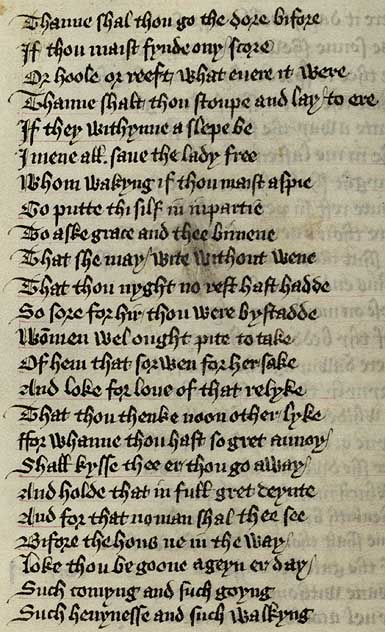 Thanne shal thou go the dore bifore
If thou maist fynde ony score
Or hoole or reeft what euere it were
Thanne shalt thou stoupe and lay to ere
If they withynne a slepe be
I mene all saue the lady free
Whom wakyng if thou maist aspie
Go putte thi silf in iupartie
To aske grace and thee bimene
That she may wite without wene
That thou nyght no rest hast hadde
So sore for hir thou were bystadde
Wōmen wel ought pite to take
Of hem that sorwen for her sake
And loke for loue of that relyke
That thou thenke noon other lyke
ffor whanne thou hast so gret annoy
Shall kysse thee er thou go away
And holde that in full gret deynte
And for that no man shal thee see
Bifore the hous ne in the way
Loke thou be goone ageyn er day
Such comyng and such goyng
Such heuynesse and such walkyng